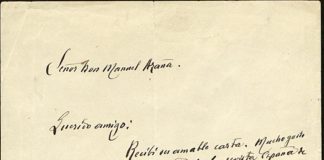 Señor Don Manuel Azaña.
Querido amigo:
Recibí su amable carta. Mucho gusto
revista España de